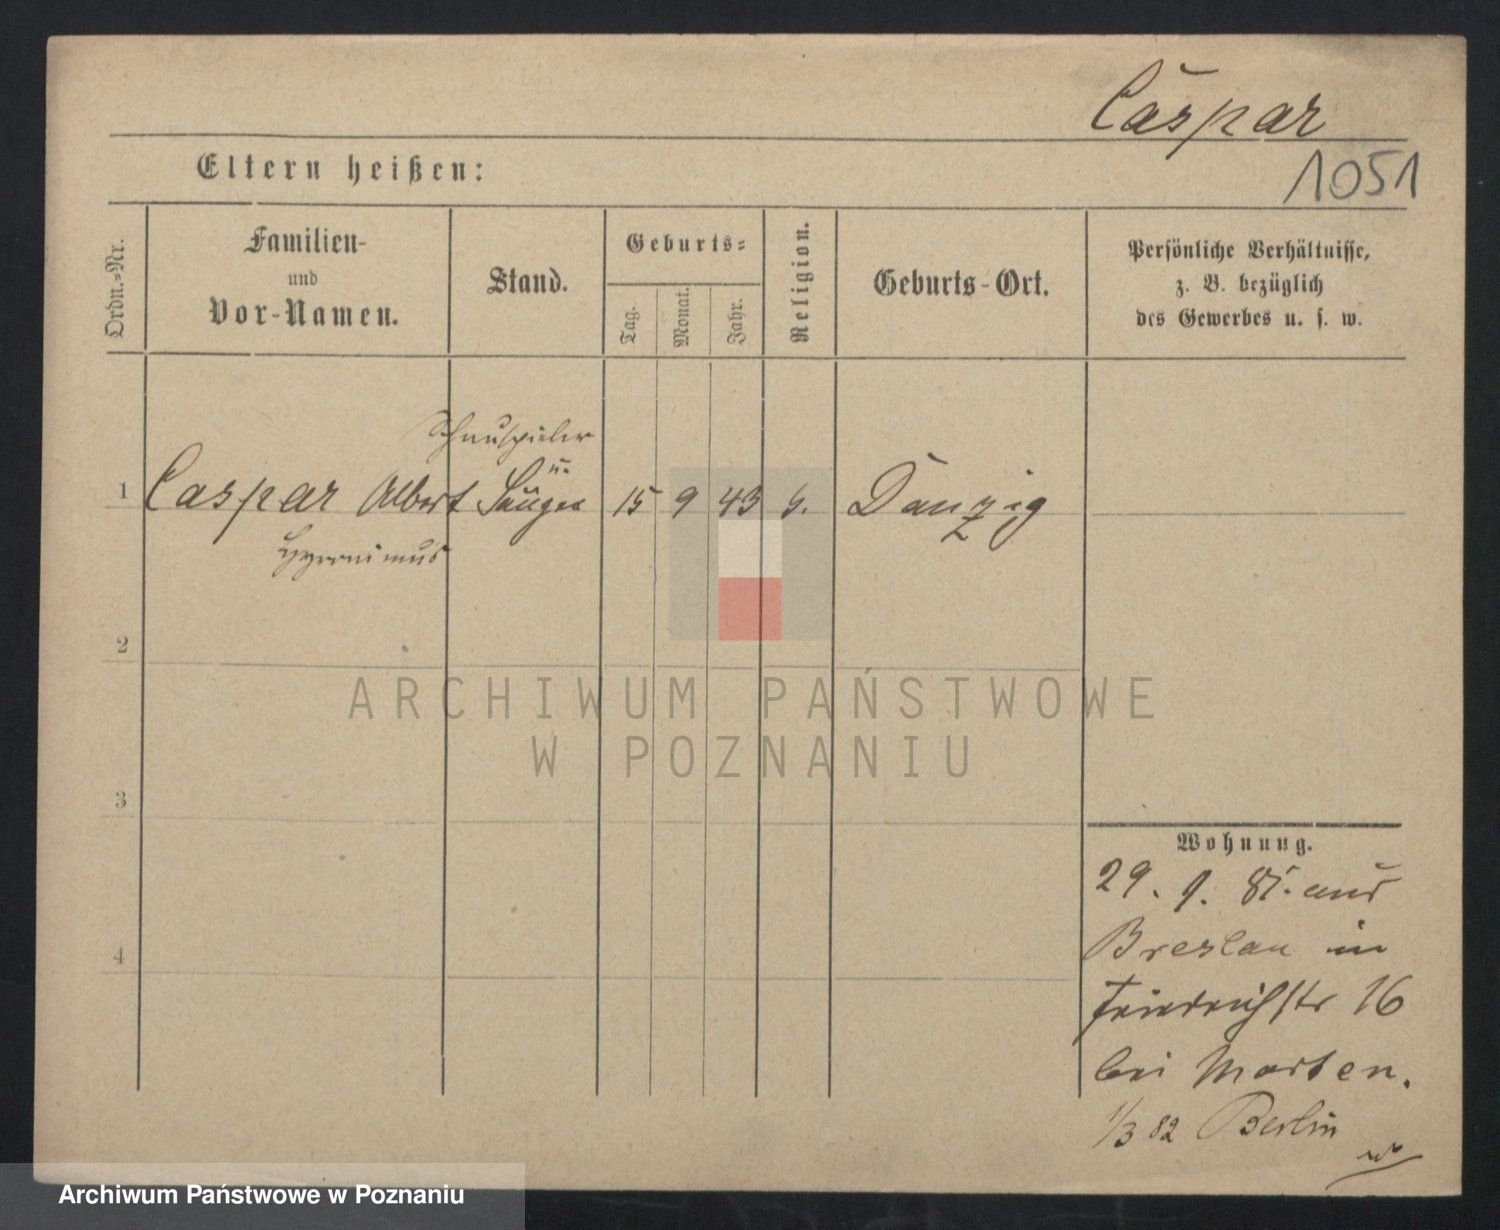 Caspar
1051
Eltern heißen:
Ordn.-Nr.
Familien-
und
Vor-Namen.
Stand.
Geburts-
Tag.
Monat.
Jahr.
Religion.
Geburts-Ort.
Persönliche Verhältnisse,
z. B. bezüglich
des Gewerbes u. s. w.
Schauspieler
u.
1 Caspar Albert Sänger 15 9 43 Danzig
2
3
4
Wohnung.
29. 9. 81. aus
Breslau in
Friedrichstr 16
bei Morten.
1/3 82 Berlin
ARCHIWUM PAŃSTWOWE
W POZNANIU
Archiwum Państwowe w Poznaniu